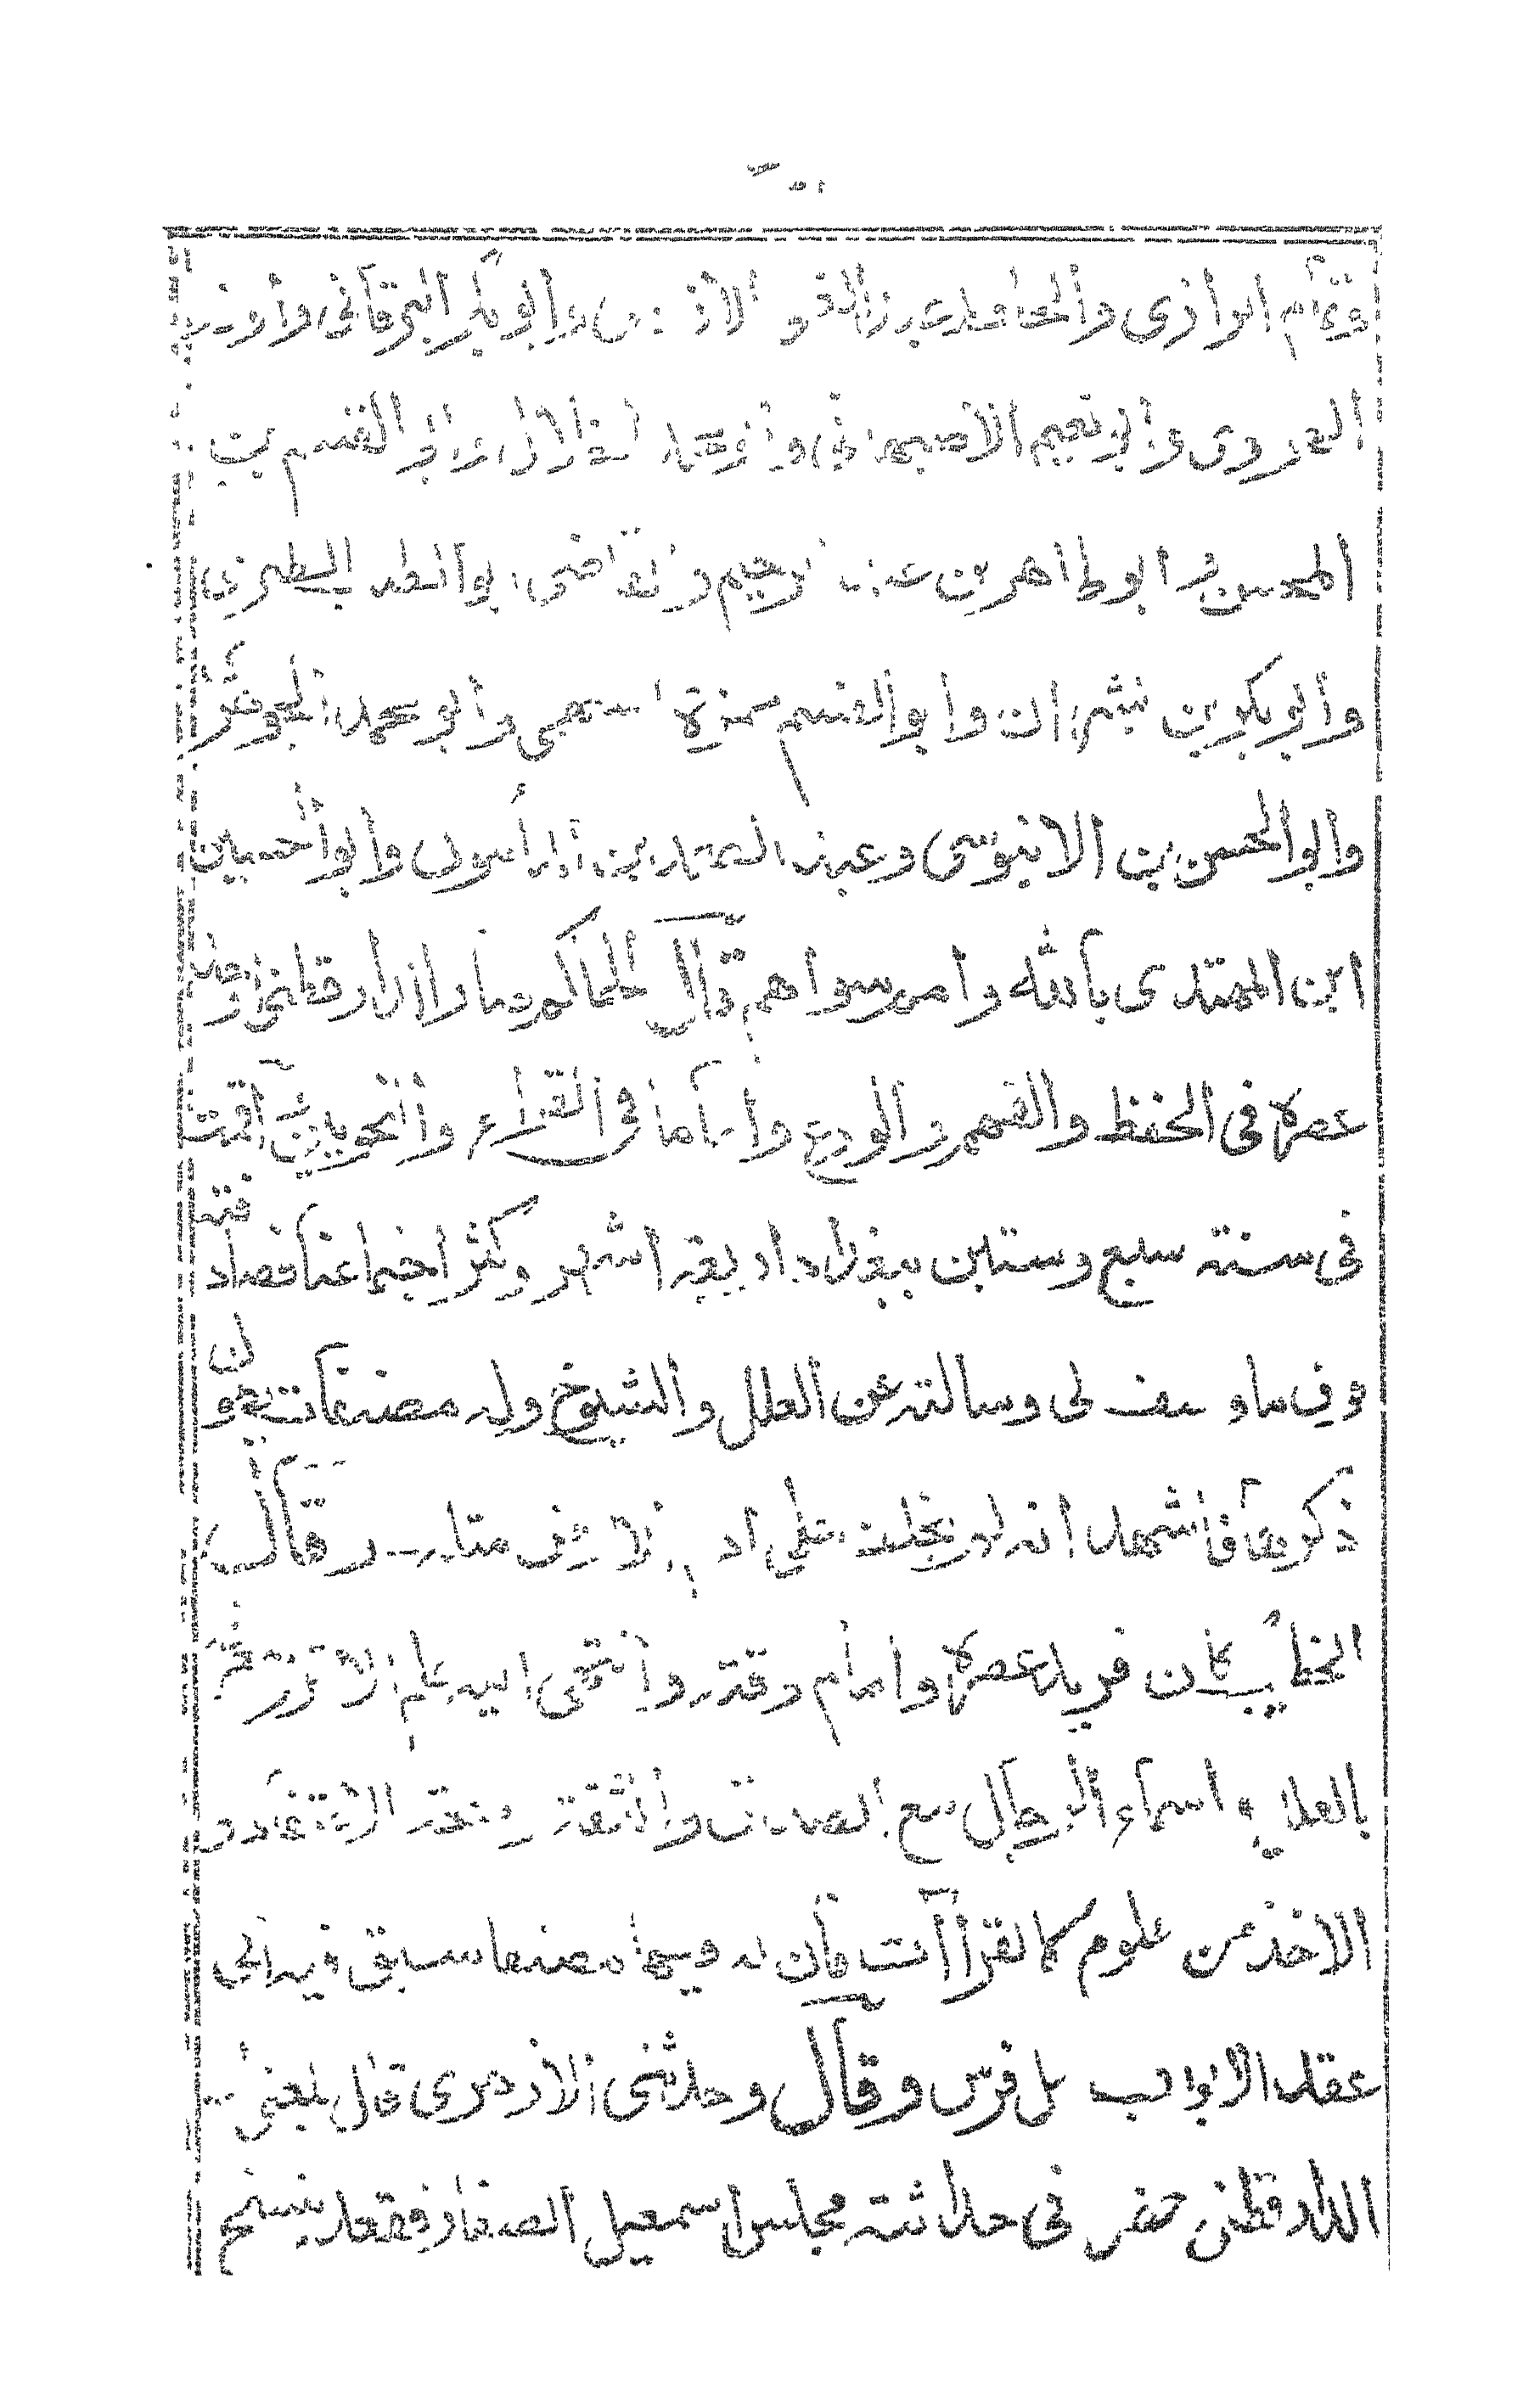 وتمام الرازى والحافظ عبد الغنى الازدى وابو بكر البرقانى وابو ذر
الهروى وابو نعيم الاصبهانى وابو محمد الخلال وابو القسم بن
المحسن وابو طاهر بن عبد الرحيم والقاضى ابو الطيب الطبرى
وابو بكر بن بشران وابو القسم حمزة السهمى وابو محمد الجوهرى
وابو الحسن بن الابنوسى وعبد الصمد بن المأمون وابو الحسين
ابن المهتدى بالله وامم سواهم قال الحاكم صار الدارقطنى اوحد
عصره فى الحفظ والفهم والورع واماما فى القراء والنحويين اقمت
فى سنة سبع وستين ببغداد اربعة اشهر وكثر اجتماعنا فصادفته
فوق ما وصف لى وسالته عن العلل والشيوخ وله مصنفات يطول
ذكرها فاشهد انه لم يخلف على اديم الارض مثله وقال
الخطيب كان فريد عصره وامام وقته وانتهى اليه علم الاثر والمعرفة
بالعلل واسماء الرجال مع الصدق والثقة وصحة الاعتقاد و
الاخذ من علوم كالقراآت فان له فيها مصنفا سبق فيه الى
عقد الابواب قبل فرش وقال وحدثنى الازهرى قال بلغنى ان
الدارقطنى حضر فى حداثته مجلس اسمعيل الصفار فقعد ينسخ